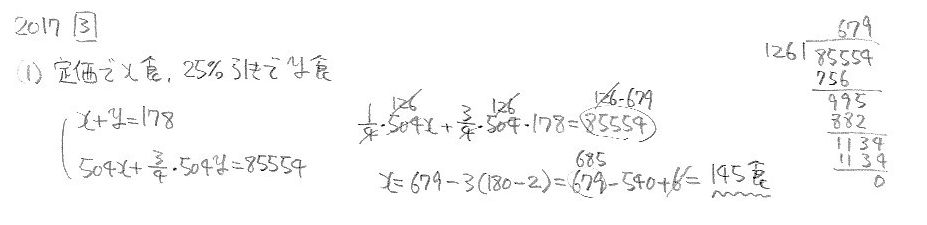 2017 3
(1) 定価でx食, 25%引きでy食
x+y=178
504x+3/4・504y=85554
126 126 126・679
1/4・504x+3/4・504・178=85554
685
x=679-3(180-2)=679-540+6=145食
679
126)85554
756
995
882
1134
1134
0